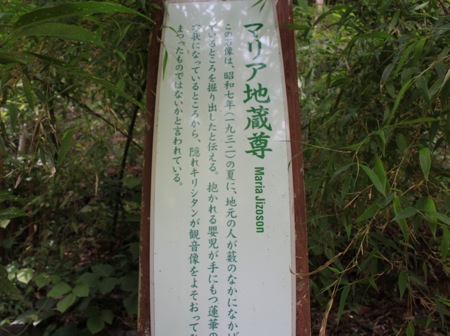 マリア地蔵尊
Maria Jizoson
この尊像は、昭和七年(一九三二)の夏に、地元の人が藪のなかになかば
ているところを掘り出したと伝える。抱かれる嬰児が手にもつ蓮華の
字状になっているところから、隠れキリシタンが観音像をよそおってま
まつったものではないかと言われている。